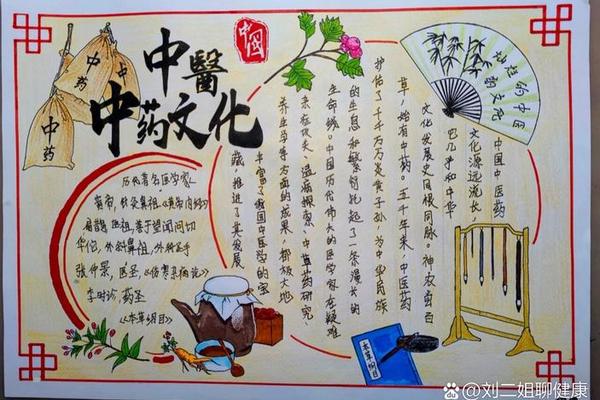 中醫
中药文化
中国
中药
中
中药
历代著名医学家
黄帝，针灸鼻祖，《黄帝内经》
扁鹊 医祖，善于望闻问切
华佗，外科鼻祖，外科圣手
张仲景，医圣，《伤寒杂病论》
李时珍，药圣
《本草纲目》
中国中医药
文化源远流长，
它几乎和中华
文化发展史同根同脉。神农尝百
草，始有中药。五千年来，中医药
护佑了千千万万炎黄子孙，为中华民族
的生息和繁衍托起了一条漫长的
生命线。中国历代伟大的医学家在疑难
杂症攻关、温病探索、中草药研究、
养生学等方面的成果，都极大地
丰富了我国中医学的宝
藏，推进了其发展
本草纲目
@刘二姐聊健康